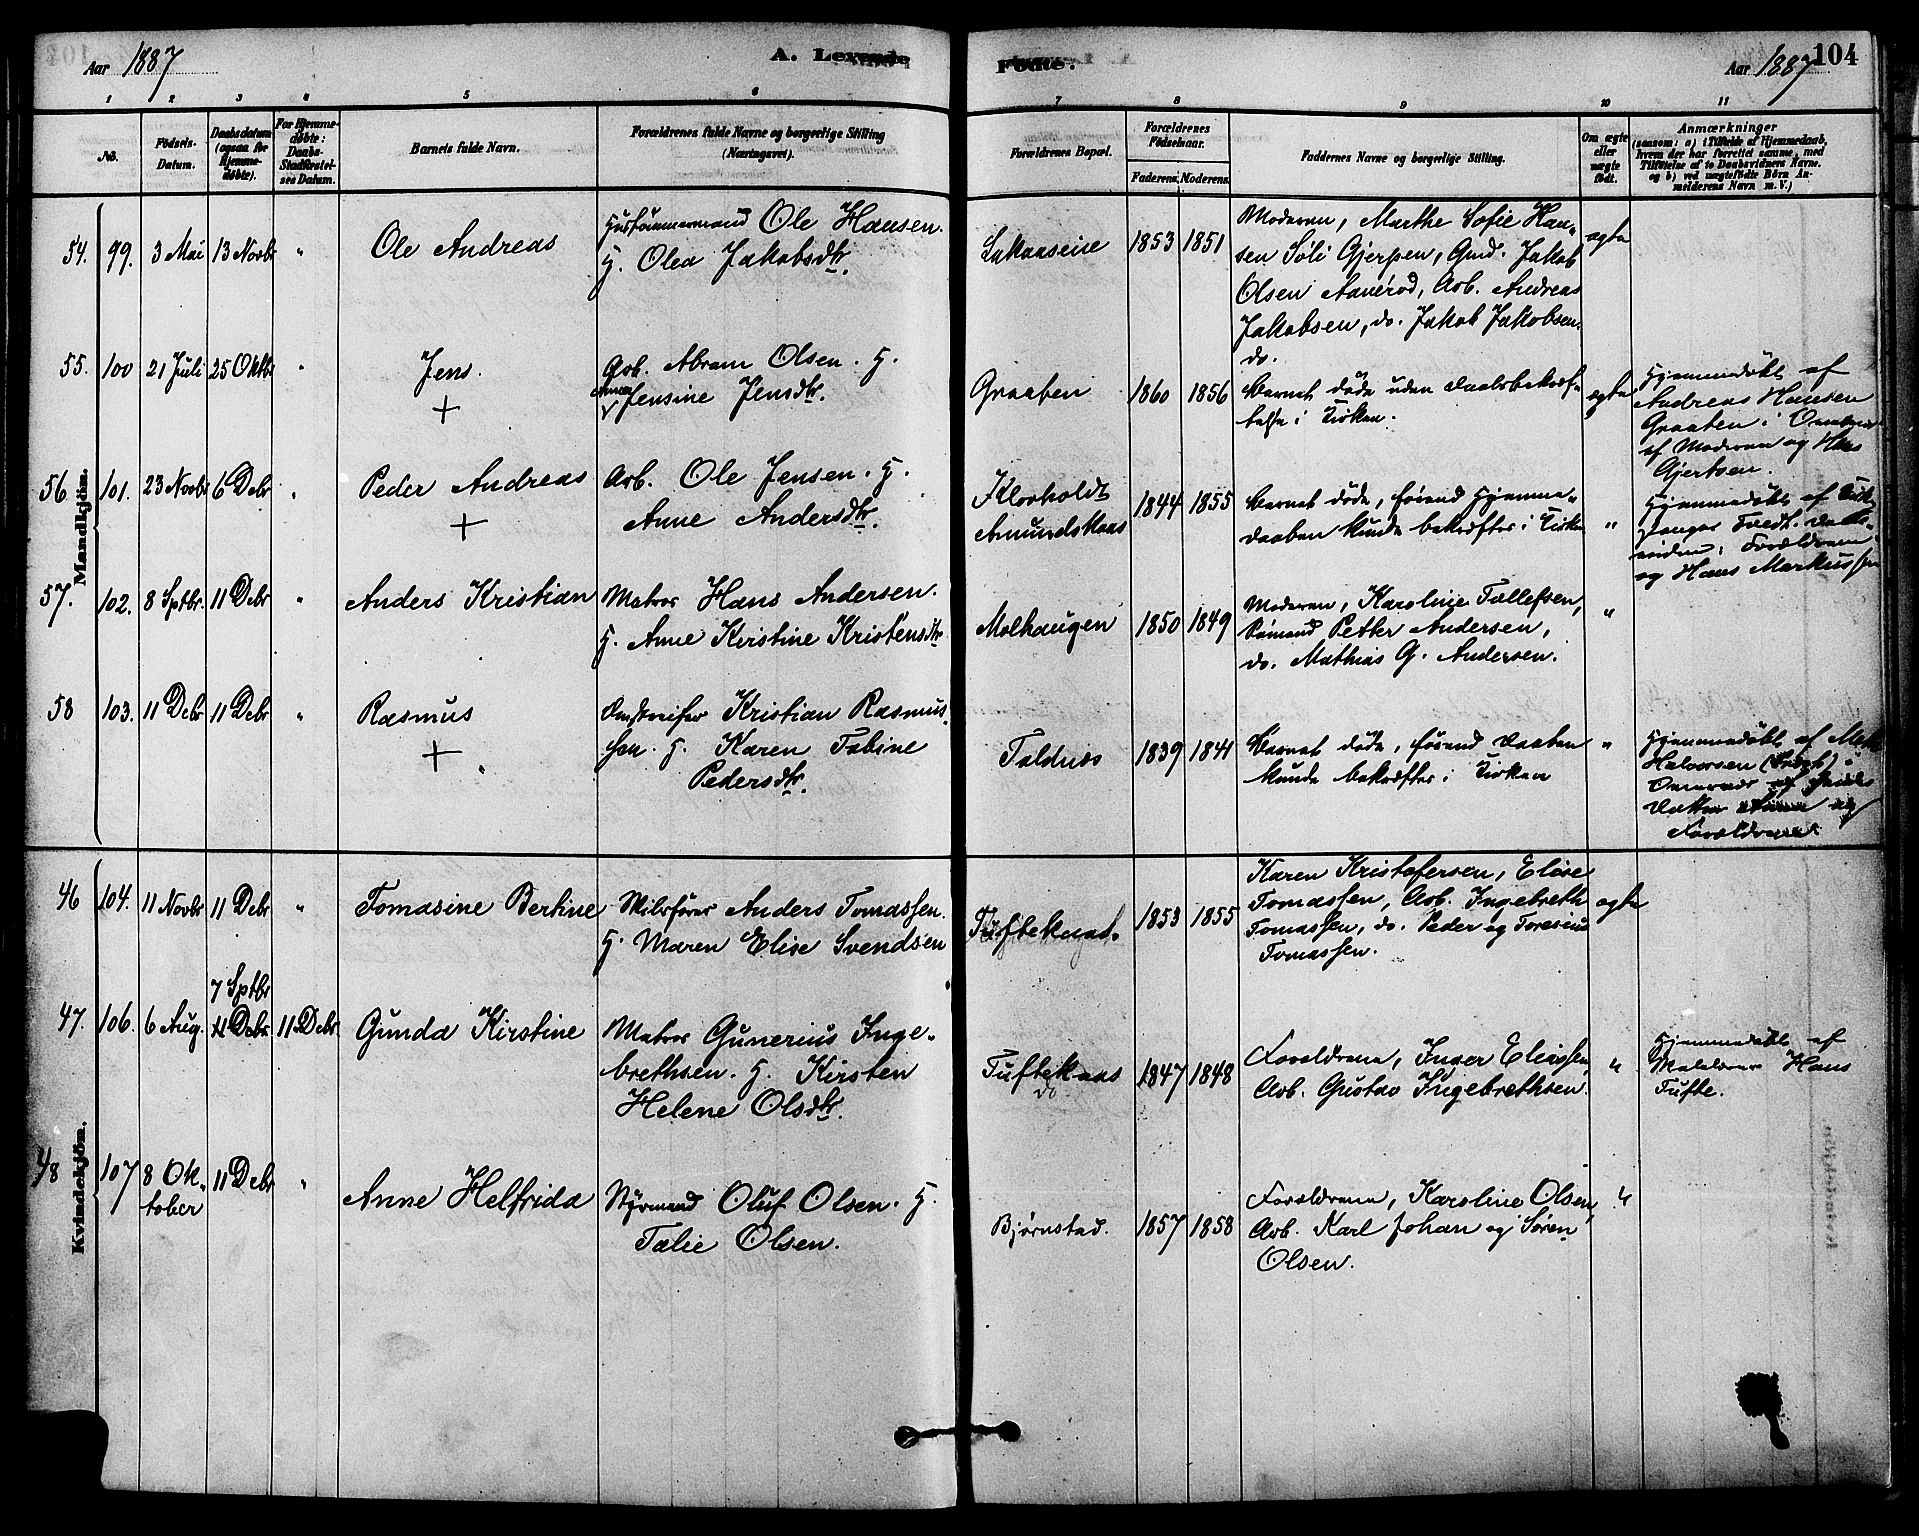 Aar 1887
A. Levende
Fødte.
Aar 1887
104
1 2 3 4 5 6 7 8 9 10 11
No.
Fødsels-
Datum.
Daabsdatum
(ogsaa for
Hjemme-
døbte).
For Hjemme-
døbte:
Daabs-
Stadfæstel-
ses Datum.
Barnets fulde Navn.
Forældrenes fulde Navne og borgerlige Stilling
(Næringsvei).
Forældrenes Bopæl.
Forældrenes
Fødselsaar.
Faderens. Moderens.
Faddernes Navne og borgerlige Stilling.
Om ægte
eller
uægte
født.
Anmærkninger
(saasom: a) i Tilfælde af Hjemmedaab,
hvem der har forrettet samme, med
Tilføielse af to Daabsvidners Navne.
og b) ved uægtefødte Børn An-
melderens Navn m. V.)
Mandkjön.
54. 99. 3 Mai 13 Novbr " Ole Andreas
Hustømmermand Ole Hansen.
H. Olea Jakobsdtr.
1853 1851
Moderen, Marthe Sofie Han-
sen Søli Gjerpen, Gmd. Jakob
Olsen Aanerød, Arb. Andreas
Jakobsen, do. Jakob Jakobsen.
do.
ægte
55. 100 21 Juli 25 Oktbr " Jens.
+
Arb. Abram Olsen. H.
Jensine Jensdtr.
Graaten 1860 1856
Barnet døde uden Daabsbekræf-
telse i Kirken.
ægte
Hjemmedøbt af
Andreas Hansen
Graaten i Overvær
af Moderen og Hans
Gjertsen.
56 101. 23 Novbr 6 Debr " Peder Andreas
+
Arb. Ole Jensen. H.
Anne Andersdtr.
Klovholdt
Amundskaas
1844 1855
Barnet døde, førend Hjemme-
daaben kunde bekræftes i Kirken
"
Hjemmedøbt af
og Hans Markussen
57. 102. 8 Sptbr. 11 Debr " Anders Kristian
Matros Hans Andersen.
H. Anne Kirstine Kristensdtr
Molhaugen 1850 1849
Moderen, Karoline Tollefsen,
Sømand Petter Andersen,
do. Mathias G. Andersen.
"
58 103. 11 Debr 11 Debr " Rasmus
+
Kristian Rasmus-
sen. H. Karen Tobine
Pedersdtr.
Foldnes 1839 1841
Barnet døde, førend Daaben
kunde bekræftes i Kirken
"
Hjemmedøbt af
Halvorsen
Overvær
Forældrene.
Kvindekjön.
46 104. 11 Novbr 11 Debr " Tomasine Bertine
Anders Tomassen.
H. Maren Elise Svendsen
1853 1855
Karen Kristofersen, Elise
Tomassen, Arb. Ingebreth
Tomassen, do. Peder og Toresius
Tomassen.
ægte
47. 106. 6 Aug. 7 Sptbr
11 Debr 11 Debr. Gunda Kirstine
Matros Gunerius Inge-
brethsen. H. Kirsten
Helene Olsdtr.
Tuftekaas
do
1847 1848
Forældrene, Inger Eliassen,
Arb. Gustav Ingebrethsen.
"
Hjemmedøbt af
Hans
Tufte.
48 107 8 Ok-
tober
11 Debr " Anne Helfrida
Styrmand Oluf Olsen. H.
Talie Olsen.
Bjørnstad. 1857 1858
Forældrene, Karoline Olsen,
Arb. Karl Johan og Søren
Olsen.
"